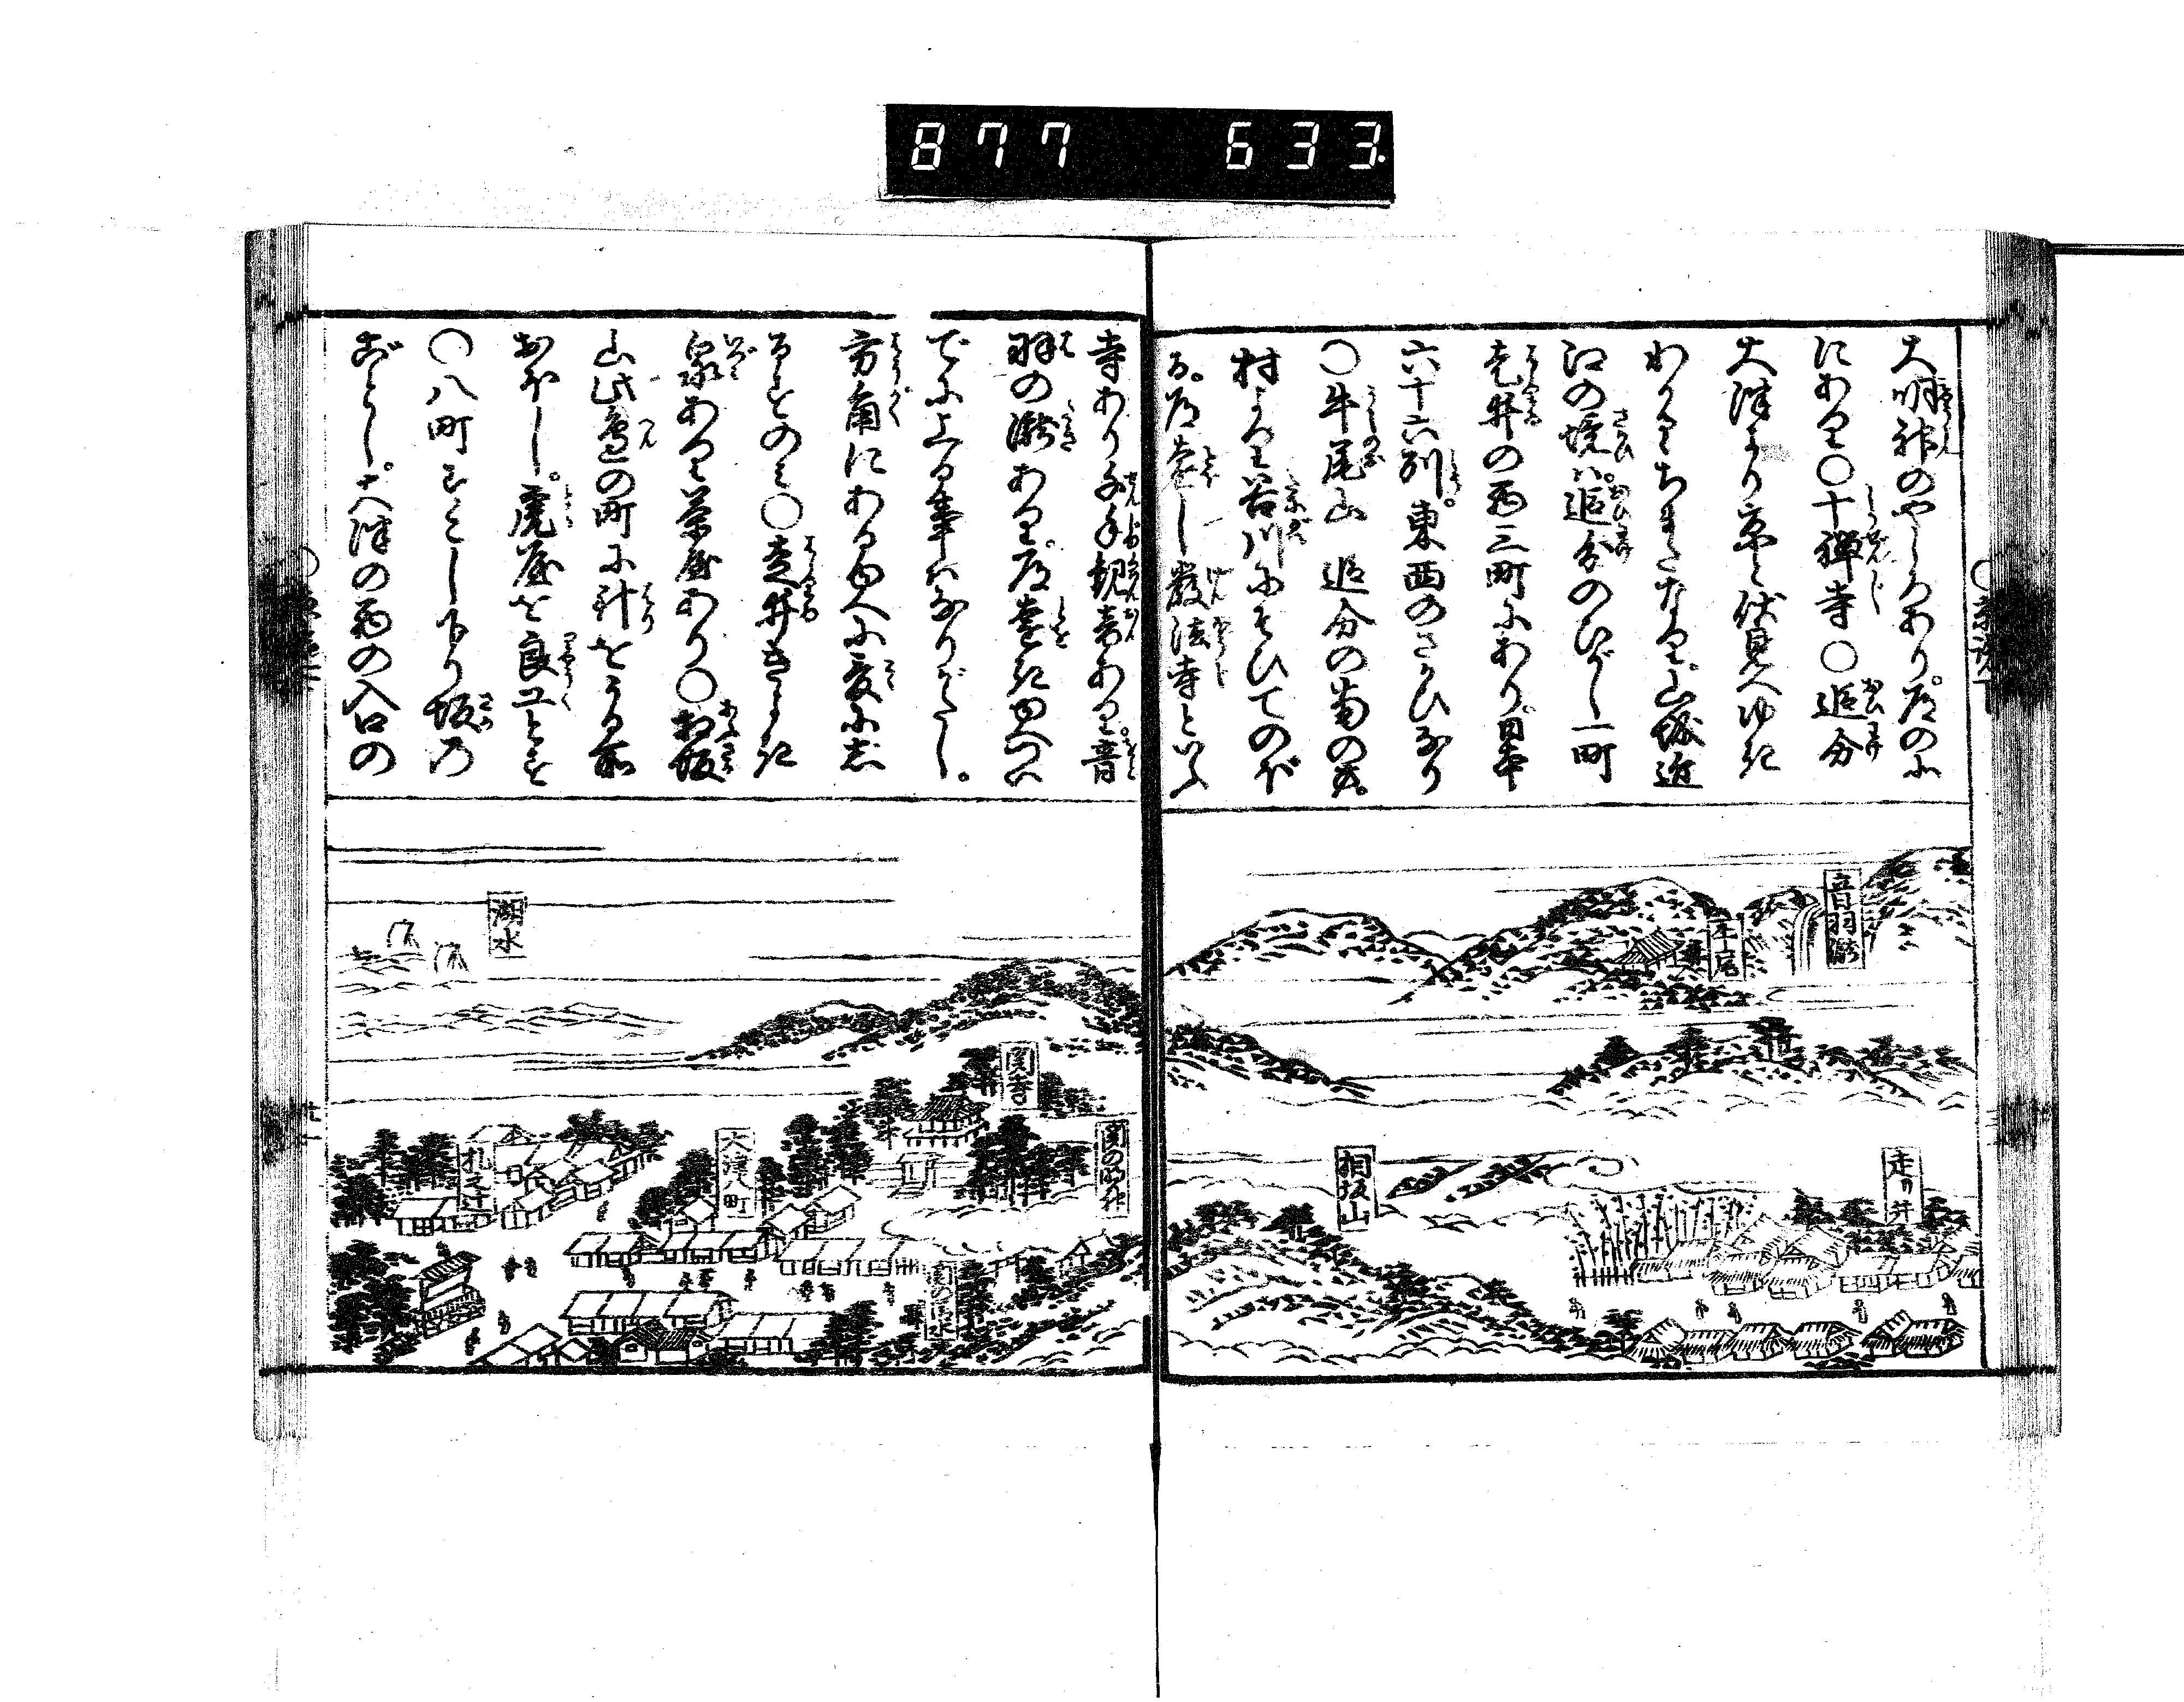 877 633.
大明神のやしろあり。道の北
にあり○十禅寺○追分
大津より京と伏見へゆき
わかりちまたなり。山城近
江の境ハ。追分のひがし一町
走井の西三町にあり。日本
六十六列。東西のさかひなり
○牛尾山 追分の南の
村より若川にそひてのぼ
る。道遠し 厳法寺といふ
寺あり千手観音あり。音
羽の瀧あり。道遠き田へハ
でに上る事ハなりがたし。
方角にある由人に爰に志
るすのミ○走井きよき
泉あり茶屋あり○相坂
山此邊の町に針をうる家
おほし。虎屋を良工とす
○八町すこし下り坂の
ごとし。大津の西の入口の
音羽瀧
牛尾
走り井
相坂山
関の明神
関寺
関の清水
大津八町
札之辻
湖水